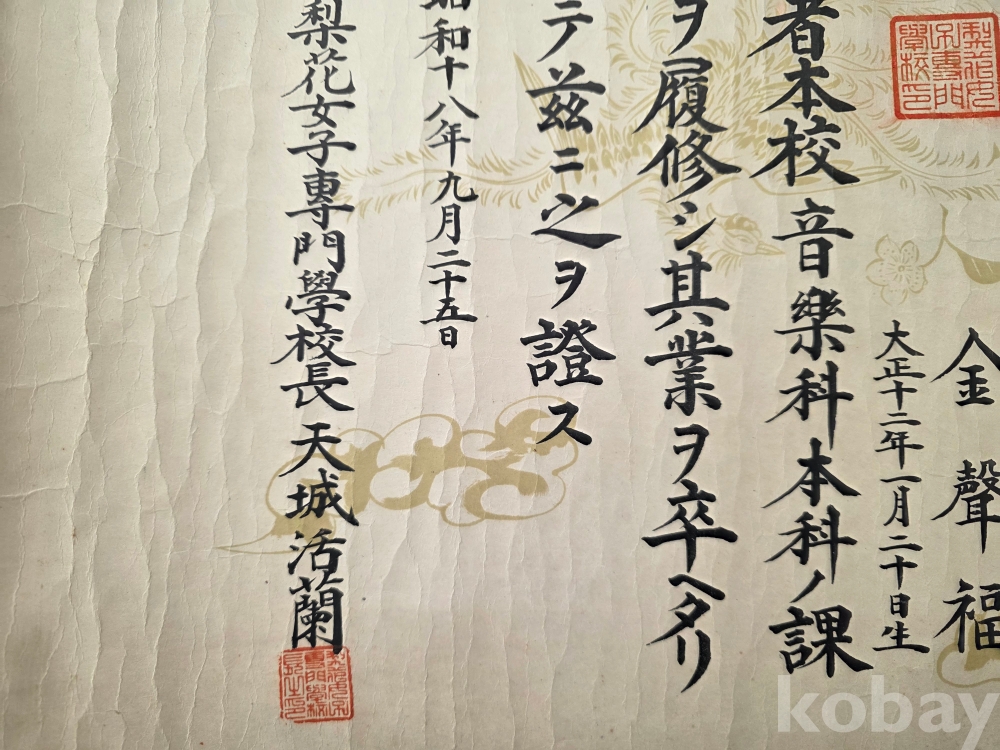 金聲福
大正十二年一月二十日生
者本校音樂科本科ノ課
ヲ履修シ其業ヲ卒ヘタリ
テ茲ニ之ヲ證ス
昭和十八年九月二十五日
梨花女子專門學校長天城活蘭
梨花女子專門學校印
kobay